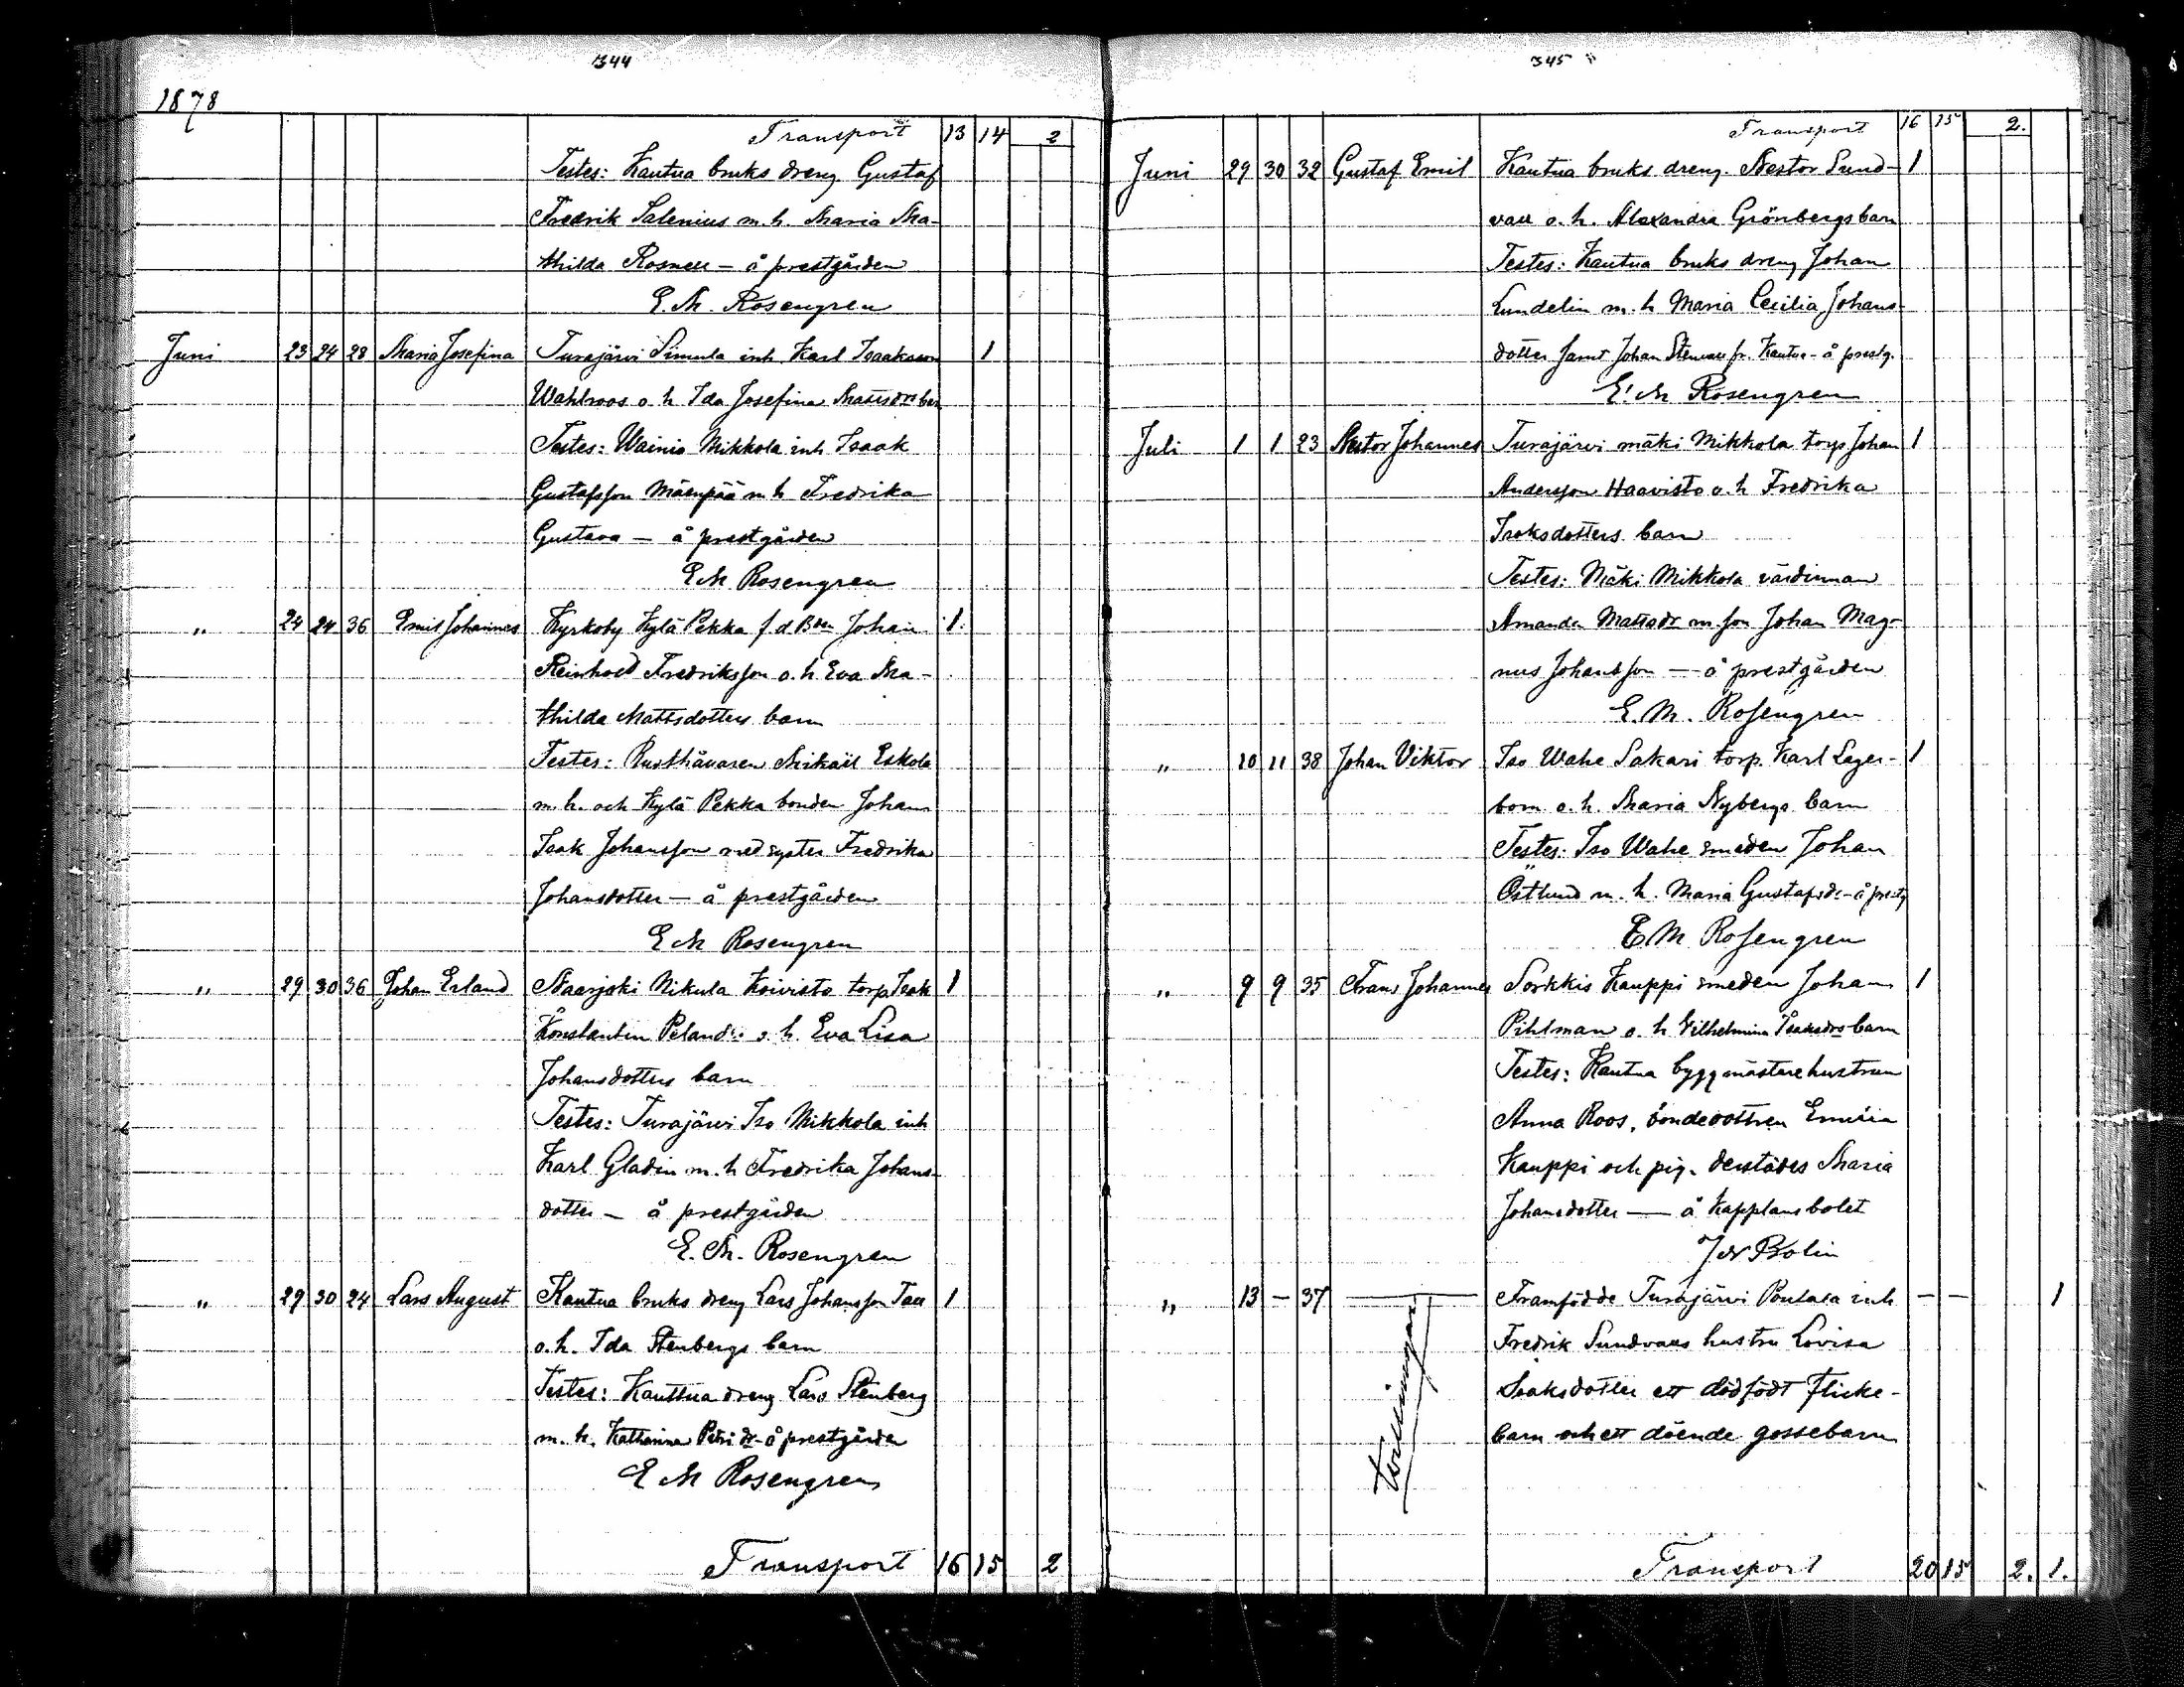 344
1878
Transport 13 14 2
Testes: Kautua bruks dreng Gustaf
Fredrik Salenius m. h. Maria Ma-
thilda Rosnell - å prestgården
E. M. Rosengren
Juni 23 24 28 Maria Josefina Turajärvi Simula inh. Karl Isaaksson 1
Wahlroos o. h Ida Josefina Mattsdrs barn
Testes: Wainio Mikkola inh Isaak
Gustafsson Mäenpää m h Fredrika
Gustava — å prestgården
E M Rosengren
" 24 24 36 Emil Johannes Kyrkoby Kylä Pekka f. d Bden Johan 1.
Reinhold Fredriksson o. h Eva Ma-
thilda Mattsdotters barn
Testes: Rusthållaren Mikaël Eskola
m. h. och Kylä Pekka bonden Johan
Isak Johansson med syster Fredrika
Johansdotter — å prestgården
E M Rosengren
" 29 30 36 Johan Erland Naarjoki Nikula Koivisto torp. Isak 1
Konstantin Pelander o. h. Eva Lisa
Johansdotters barn
Testes: Turajärvi Iso Mikkola inh
Karl Gladin m. h Fredrika Johans-
dotter — å prestgården
E. M. Rosengren
" 29 30 24 Lars August Kautua bruks dreng Lars Johansson Tall 1
o. h. Ida Stenbergs barn
Testes: Kauttua dreng Lars Stenberg
m. h. Katharina Petri dr - å prestgården
E M Rosengren
Transport 16 15 2
345
Transport 16 15 2.
Juni 29 30 32 Gustaf Emil Kautua bruks dreng. Nestor Sund- 1
vall o. h. Alexandra Grönbergs barn
Testes: Kautua bruks dreng Johan
Lundelin m. h Maria Cecilia Johans-
dotter samt Johan Stenvall fr. Kautua - å prestg.
E. M Rosengren
Juli 1 1 23 Nestor Johannes Turajärvi mäki Mikkola torp Johan 1
Andersson Haavisto o. h Fredrika
Isaksdotters barn
Testes: Mäki Mikkola värdinnan
Amanda Mattsdr m. son Johan Mag-
nus Johansson — å prestgården
E. M. Rosengren
" 10 11 38 Johan Viktor Iso Wahe Sakari torp. Karl Lager- 1
bom o. h. Maria Nybergs barn
Testes: Iso Wahe smeden Johan
Östlund m. h. Maria Gustafsdr - å prestg
E M Rosengren
" 9 9 35 Frans Johannes Sorkkis Kauppi smeden Johan 1
Pihlman o. h Vilhelmina Isaksdrs barn
Testes: Kautua byggmästarehustrun
Anna Roos, bondedottren Emilia
Kauppi och pig. derstädes Maria
Johansdotter — å Kapplansbolet
Bolin
" 13 — 37 — Framfödde Turajärvi Poutala inh — — 1
Fredrik Sundvalls hustru Lovisa
Isaksdotter ett dödfödt flicke-
barn och ett döende gossebarn
tvillingar
Transport 20 15 2. 1.